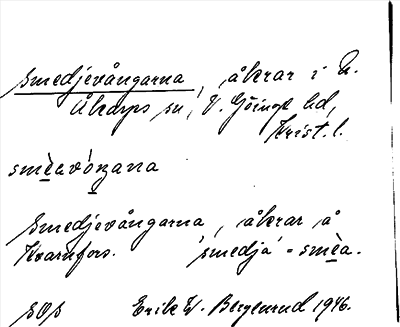 Smedjevångarna, åkrar i N.
Åkarps sn, V. Göinge hd,
Krist. l.
smèavóŋana
Smedjevångarna, åkrar å
Kvarnfors. 'smedja' = smèa.
Erik W. Bergenrud 1946.